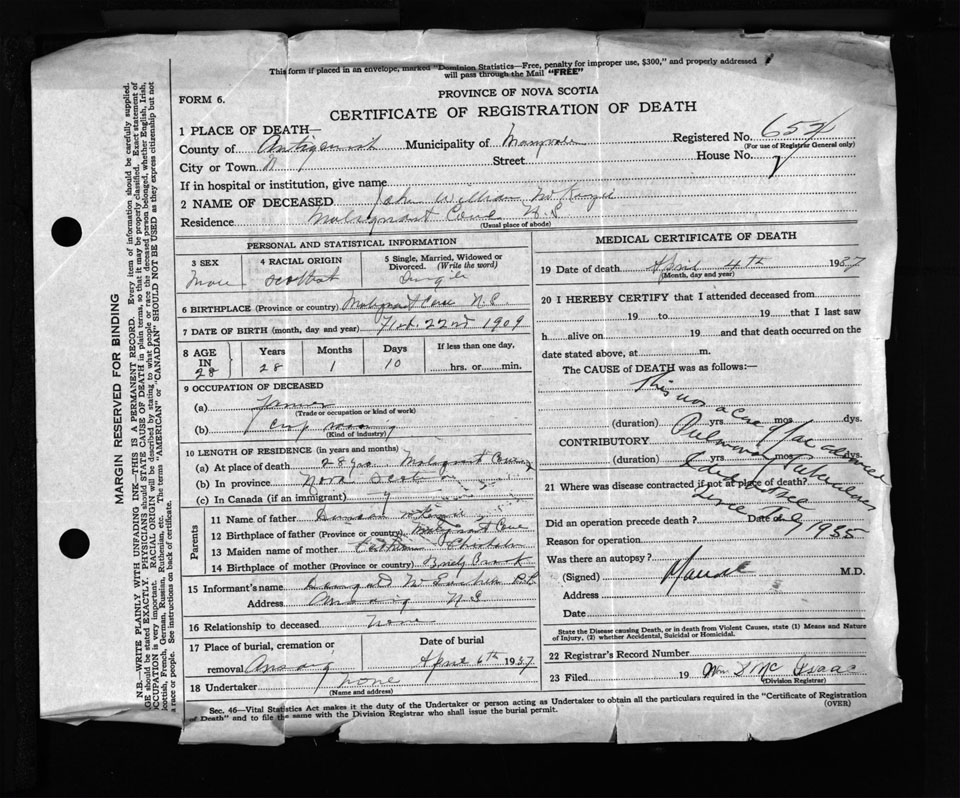 This form if placed in an envelope, marked "Dominion Statistics—Free, penalty for improper use, $300," and properly addressed
will pass through the Mail "FREE"
PROVINCE OF NOVA SCOTIA
FORM 6.
CERTIFICATE OF REGISTRATION OF DEATH
1 PLACE OF DEATH—
County of Antigonish Municipality of Registered No.
(For use of Registrar General only)
City or Town Street House No.
If in hospital or institution, give name
2 NAME OF DECEASED John William McKenzie
Residence Malignant Cove N.S.
(Usual place of abode)
PERSONAL AND STATISTICAL INFORMATION
3 SEX 4 RACIAL ORIGIN 5 Single, Married, Widowed or Divorced. (Write the word)
Scottish Single
6 BIRTHPLACE (Province or country) Malignant Cove N.S.
7 DATE OF BIRTH (month, day and year) Feb. 22nd 1909
8 AGE IN Years Months Days If less than one day,
28 28 1 10 hrs. or min.
9 OCCUPATION OF DECEASED
(a) Farmer
(Trade or occupation or kind of work)
(b)
(Kind of industry)
10 LENGTH OF RESIDENCE (in years and months)
(a) At place of death 28 yrs. Malignant Cove
(b) In province Nova Scotia
(c) In Canada (if an immigrant)
Parents
11 Name of father Duncan McKenzie
12 Birthplace of father (Province or country) Malignant Cove
13 Maiden name of mother Chisholm
14 Birthplace of mother (Province or country) Brook
15 Informant's name
Address Arisaig N.S.
16 Relationship to deceased none
17 Place of burial, cremation or Date of burial
removal Arisaig April 6th 1937
18 Undertaker none
(Name and address)
MEDICAL CERTIFICATE OF DEATH
19 Date of death April 4th 1937
(Month, day and year)
20 I HEREBY CERTIFY that I attended deceased from
19 to 19 that I last saw
h alive on 19 and that death occurred on the
date stated above, at m.
The CAUSE of DEATH was as follows:—
This was a case of an advanced
(duration) yrs. mos. dys.
Pulmonary Tuberculosis
CONTRIBUTORY
(duration) yrs. mos.
I
21 Where was disease contracted if not at place of death?
since July 1935
Did an operation precede death? Date of
Reason for operation
Was there an autopsy?
(Signed) M.D.
Address
Date
State the Disease causing Death, or in death from Violent Causes, state (1) Means and Nature
of Injury, (2) whether Accidental, Suicidal or Homicidal.
22 Registrar's Record Number
23 Filed 19 Wm McIsaac
(Division Registrar)
Sec. 46—Vital Statistics Act makes it duty of the Undertaker or person acting as Undertaker to obtain all the particulars required in the "Certificate of Registration
of Death" and to file the same with the Division Registrar who shall issue the burial permit.
(OVER)
MARGIN RESERVED FOR BINDING
N.B.—WRITE PLAINLY WITH UNFADING INK—THIS IS A PERMANENT RECORD. Every item of information should be carefully supplied.
AGE should be stated EXACTLY. PHYSICIANS should STATE CAUSE OF DEATH in plain terms, so that it may be properly classified. Exact statement of
OCCUPATION is very important. RACIAL ORIGIN will be described by stating to what people or race the deceased person belonged, whether English, Irish,
Scottish, French, German, Russian, Ruthenian, etc. The terms "AMERICAN" or "CANADIAN" SHOULD NOT BE USED as they express citizenship but not
a race or people. See instructions on back of certificate.